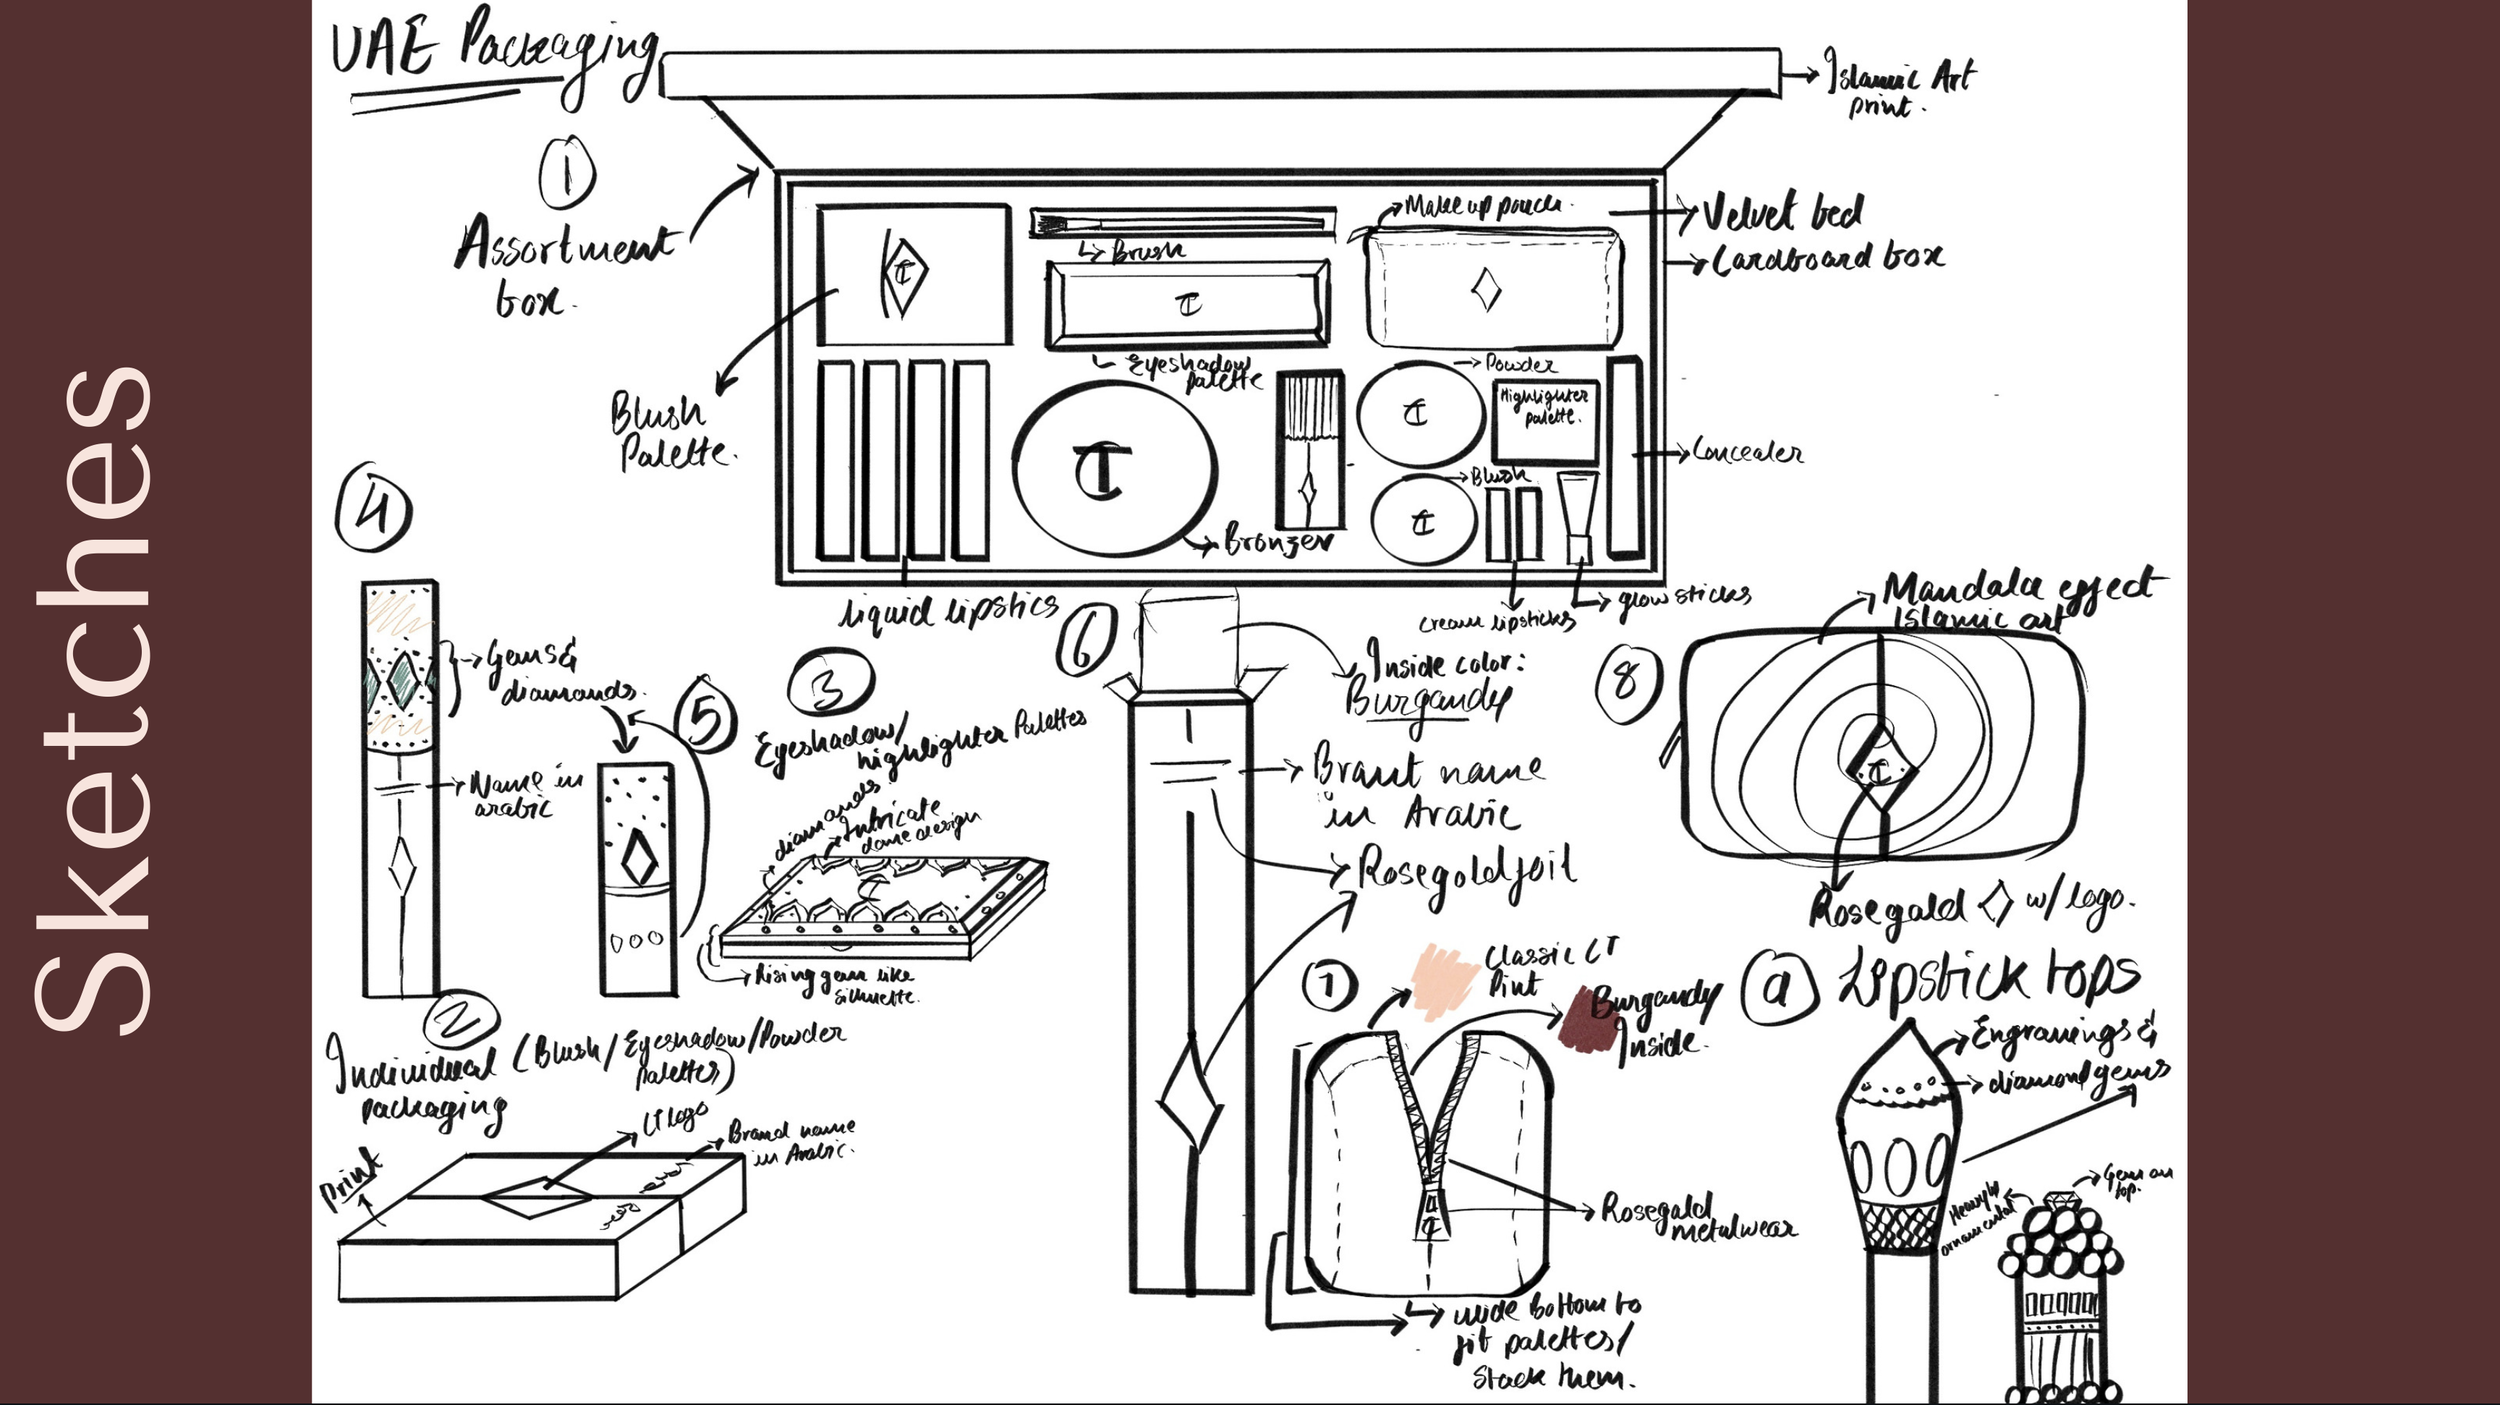 Sketches
UAE Packaging
Islamic Art
print.
1
Assortment
box.
Make up pouch.
Velvet bed
Cardboard box
CT
Brush
CT
Eyeshadow
palette
Powder
Highlighter
palette.
CT
CT
Blush
CT
Concealer
Blush
Palette.
Bronzer
liquid lipstics
cream lipsticks
glow sticks
4
Gems &
diamonds.
Name in
arabic
5
3
Eyeshadow/
highlighter Palettes
diamonds
Intricate
dome design
CT
Rising gem like
silhuette.
6
Inside color:
Burgandy
Brant name
in Arabic
Rosegold foil
8
Mandala effect
Islamic art
CT
Rosegald w/ logo.
2
Individual (Blush/Eyeshadow/Powder
palettes)
packaging
CT logo
Brand name
in Arabic.
Print
7
Classic CT
Pint
Burgandy
Inside.
Rosegald
metalwear
wide bottom to
fit palettes/
stack them.
a
Lipstick tops
Engravings &
diamond gems
Gem on
top.
Heavyly
ornamental